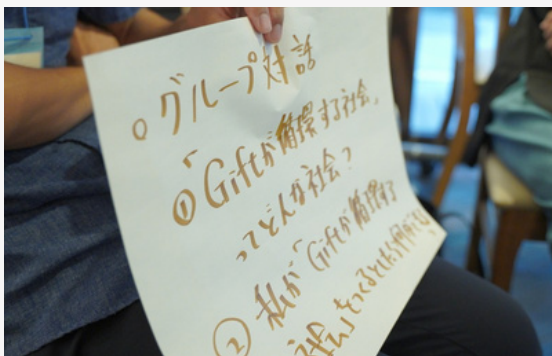 ○グループ対話
①「Giftが循環する社会」
ってどんな社会?
② 私が「Giftが循環する
社会」をつくるとしたら何をする?